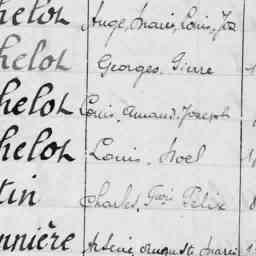 helot Ange, Marie, Louis, Jh
helot Georges, Pierre
helot Louis, Amand, Joseph
helot Louis, Noel
tin Charles, Félix
nnière Arsène, Marie